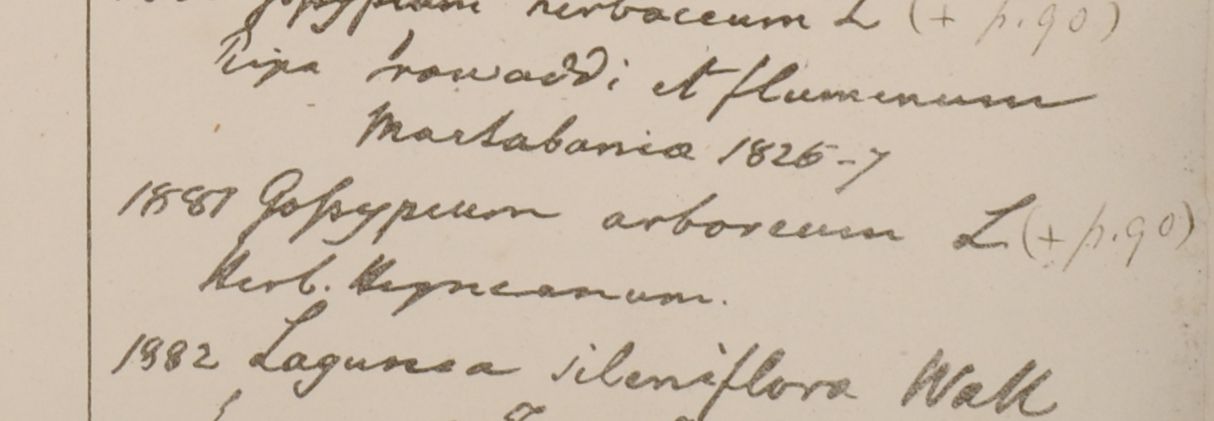 Gossypium herbaceum L (+ p.90)
Ripa Irawaddi et fluminum
Martabaniæ 1826-7
1881 Gossypium arboreum L (+ p.90)
Herb. Heyneanum.
1882 Lagunea sileniflora Wall